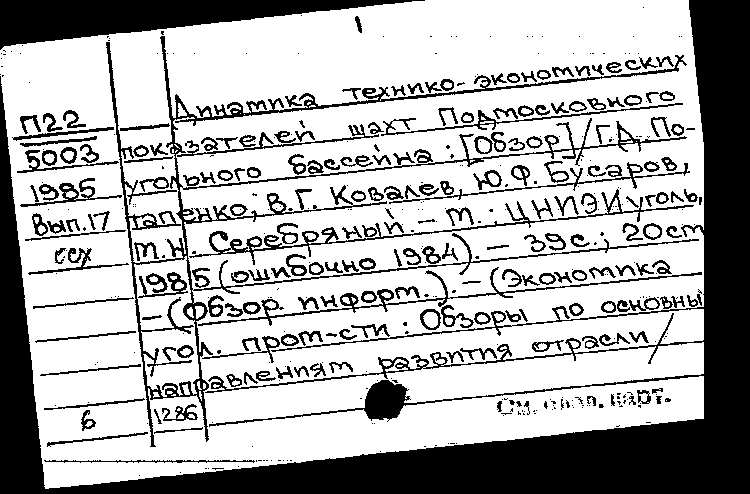 1
Динамика технико-экономических
П22 показателей шахт Подмосковного
5003 угольного бассейна : [Обзор] / Г.Д. По-
1985 тапенко, В.Г. Ковалев, Ю.Ф. Бусаров,
Вып.17 Т.Н. Серебряный. – М. : ЦНИЭИуголь,
ссх 1985 (ошибочно 1984). – 39 с. ; 20 см
– (Обзор. информ.). – (Экономика
угол. пром-сти : Обзоры по основны
направлениям развития отрасли /
6 1286
См. след. карт.